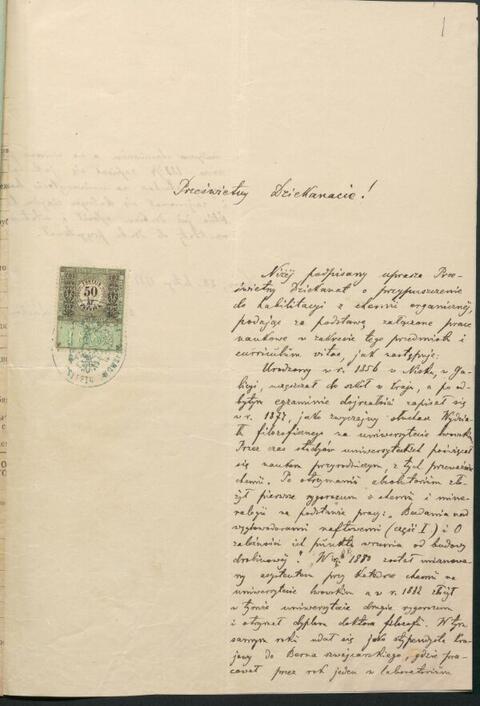 1
Prześwietny Dziekanacie!
50
Niżej podpisany uprasza Prze-
świetny Dziekanat o przypuszczenie
do habilitacyi z chemii organicznej,
podając za podstawę załączone prace
naukowe w zakresie tego przedmiotu i
curriculum vitae, jak następuje:
Urodzony w r. 1856 w Nisku, w Ga-
licyi, uczęszczał do szkół w kraju, a po od-
bytym egzaminie dojrzałości zapisał się
w r. 1877, jako zwyczajny słuchacz Wydzia-
łu filozoficznego na uniwersytecie lwowskim.
Przez czas studyów uniwersyteckich poświęcał
się naukom przyrodniczym, z tych przeważnie
chemii. Po otrzymaniu absolutorium zło-
żył pierwsze rygorozum z chemii i mine-
ralogii na podstawie pracy: „Badania nad
węglowodorami naftowemi (część I.) i O
zależności ich punktu wrzenia od budowy
drobinowej". W r. 1880 został mianowa-
ny asystentem przy katedrze chemii na
uniwersytecie lwowskim a w r. 1882 złożył
w tymże uniwersytecie drugie rygorozum
i otrzymał dyplom doktora filozofii. W tym
samym roku udał się jako stypendysta kra-
jowy do Berna szwajcarskiego, gdzie pra-
cował przez rok jeden w laboratorium